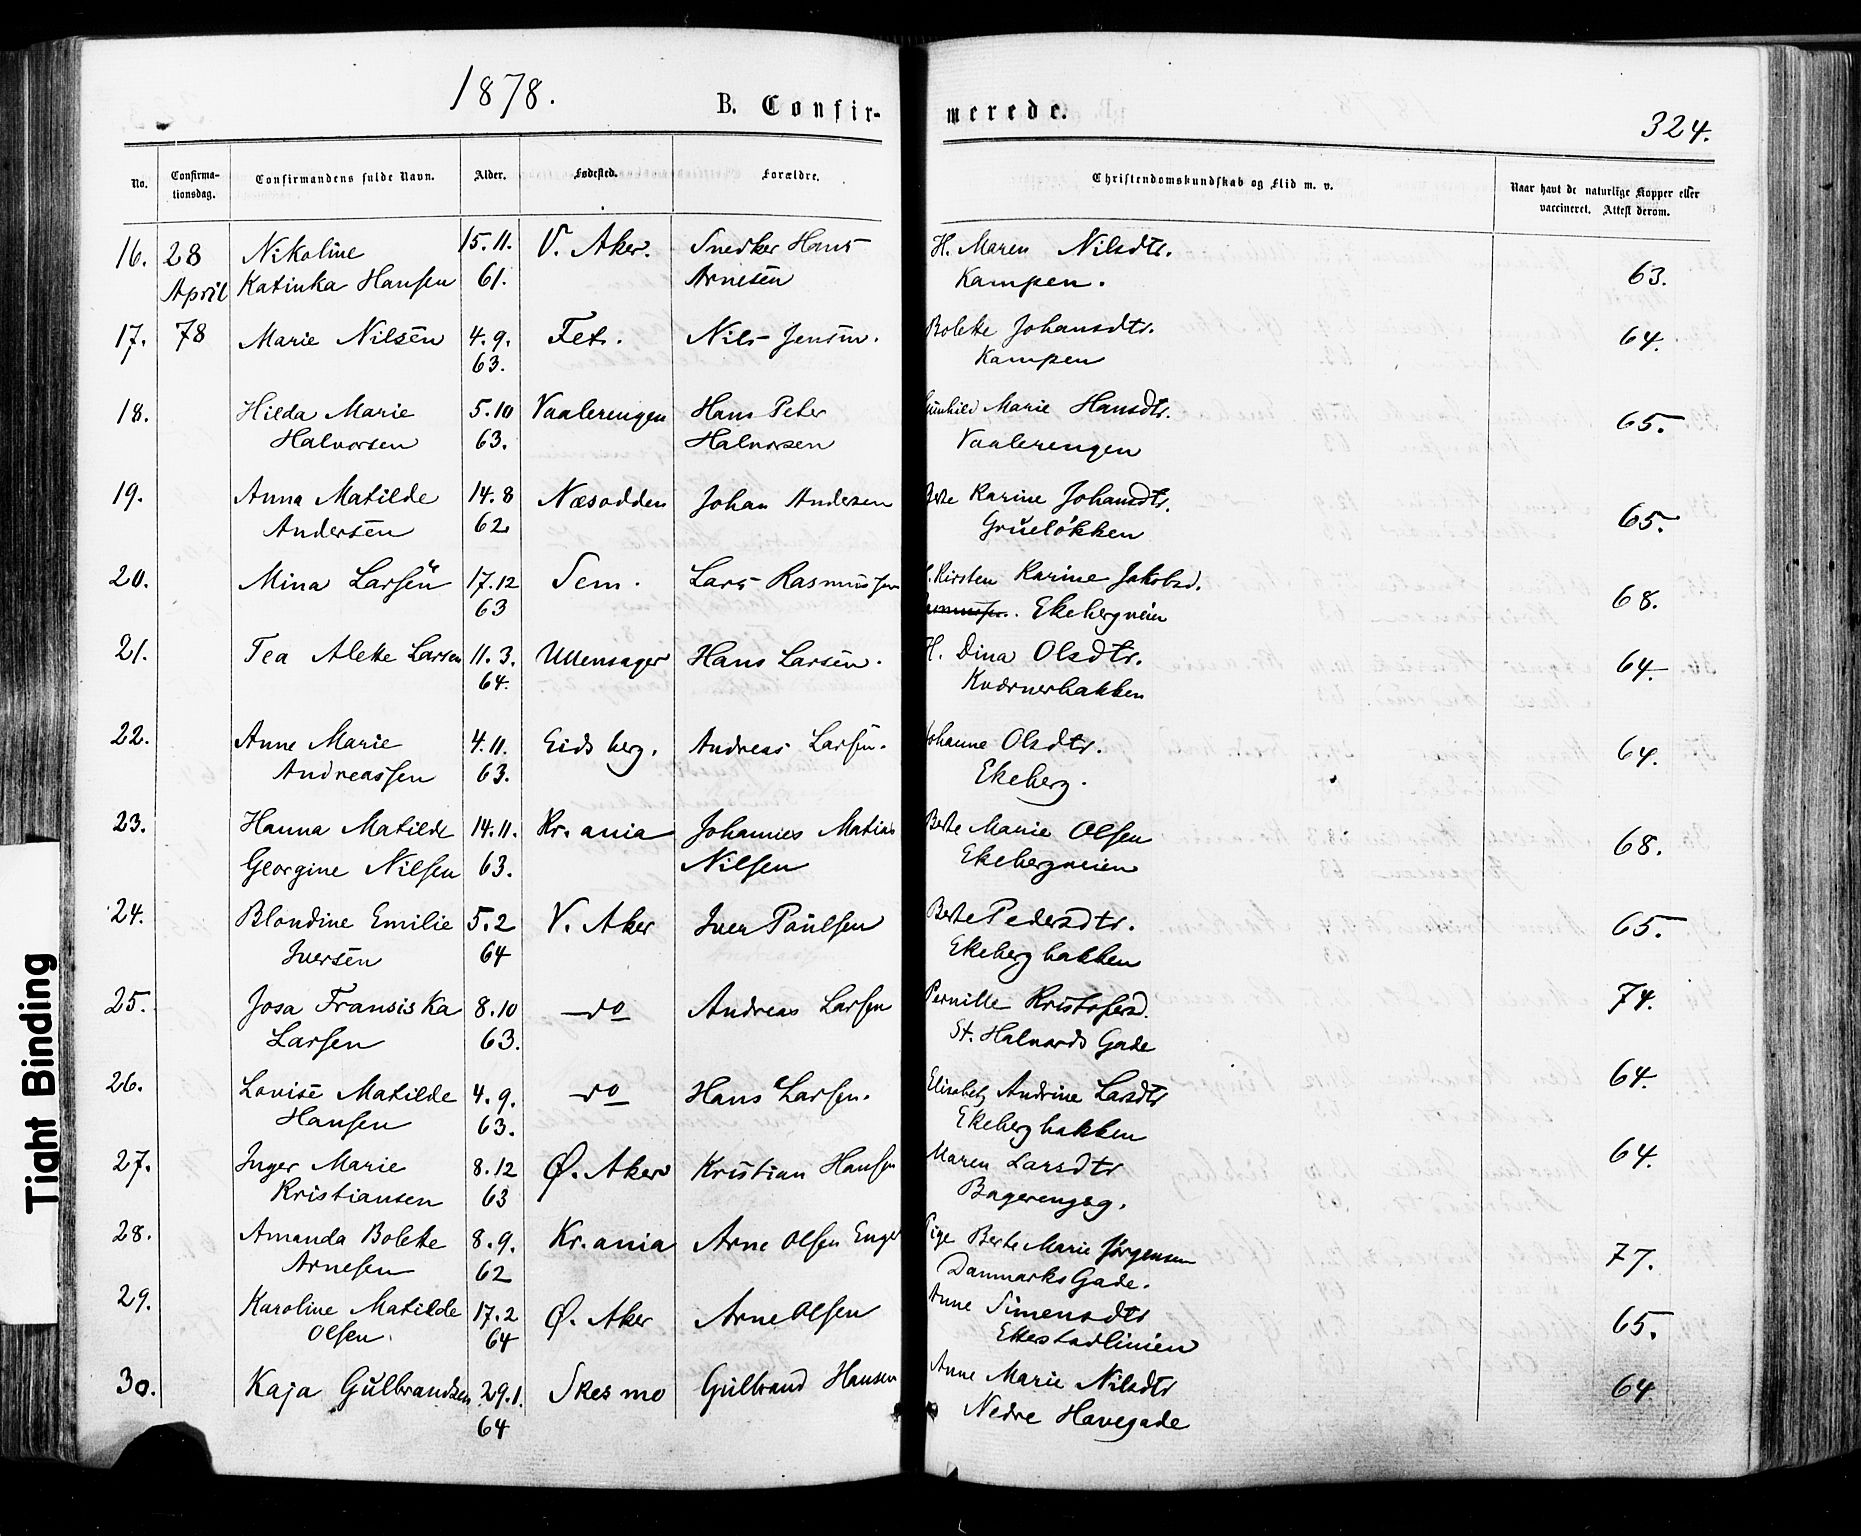 1878.
B. Confir-
merede.
324.
No.
Confirma-
tionsdag.
Confirmandens fulde Navn.
Alder.
Fødested.
Forældre.
Christendomskundskab og Flid m. v.
Naar havt de naturlige Kopper eller
vaccineret. Attest derom.
16. 28 Nikoline 15.11. V. Aker. Snedker Hans H. Maren Nilsdtr.
April Katinka Hansen 61. Arnesen Kampen. 63.
17. 78 Marie Nilsen 4.9. Fet. Nils Jensen. Bolette Johansdtr. 64.
63. Kampen
18. Hilda Marie 5.10 Vaalerengen Hans Peter Gunhild Marie Hansdtr. 65.
Halvorsen 63. Halvorsen Vaalerengen
19. Anna Matilde 14.8 Næsodden Johan Andersen Berte Karine Johansdtr. 65.
Andersen 62 Grueløkken
20. Mina Larsen 17.12 Sem. Lars Rasmussen Kirsten Karine Jakobsd. 68.
63 Ekebergveien
21. Tea Alette Larsen 11.3. Ullensager Hans Larsen. H. Dina Olsdtr. 64.
64. Kværnerbakken
22. Anne Marie 4.11. Eidsberg. Andreas Larsen. Johanne Olsdtr. 64.
Andreassen 63. Ekeberg.
23. Hanna Matilde 14.11. Kr.ania Johannes Matias Berte Marie Olsen 68.
Georgine Nilsen 63. Nilsen Ekebergveien
24. Blondine Emilie 5.2 V. Aker Iver Paulsen Berte Pedersdtr. 65.
Iversen 64 Ekebergbakken
25. Josa Fransiska 8.10 do Andreas Larsen Pernille Kristofersd. 74.
Larsen 63. St. Halvards Gade
26. Lovise Matilde 4.9. do Hans Larsen. Elisabet Andrine Larsdtr 64.
Hansen 63. Ekebergbakken
27. Inger Marie 8.12 Ø. Aker Kristian Hansen Maren Larsdtr 64.
Kristiansen 63 Bøgerengsg.
28. Amanda Bolette 8.9. Kr.ania Arne Olsen Enger Pige Berte Marie Jørgensen 77.
Arnesen 62 Danmarks Gade.
29. Karoline Matilde 17.2 Ø. Aker Arne Olsen Anne Simensdtr 65.
Olsen. 64
30. Kaja Gulbrandsen 29.1. Skesmo Gulbrand Hansen Anne Marie Nilsdtr 64.
64 Nedre Havegade
Tight Binding